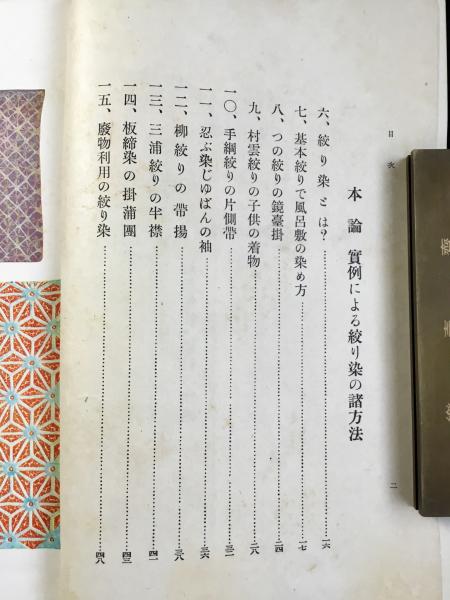 目次
二
本論 實例による絞り染の諸方法
六、絞り染とは？……一六
七、基本絞りで風呂敷の染め方……一七
八、つの絞りの鏡臺掛……二四
九、村雲絞りの子供の着物……二八
一〇、手綱絞りの片側帶……三二
一一、忍ぶ染じゆばんの袖……三六
一二、柳絞りの帶揚……三八
一三、三浦絞りの半襟……四一
一四、板締染の掛蒲團……四三
一五、廢物利用の絞り染……四八